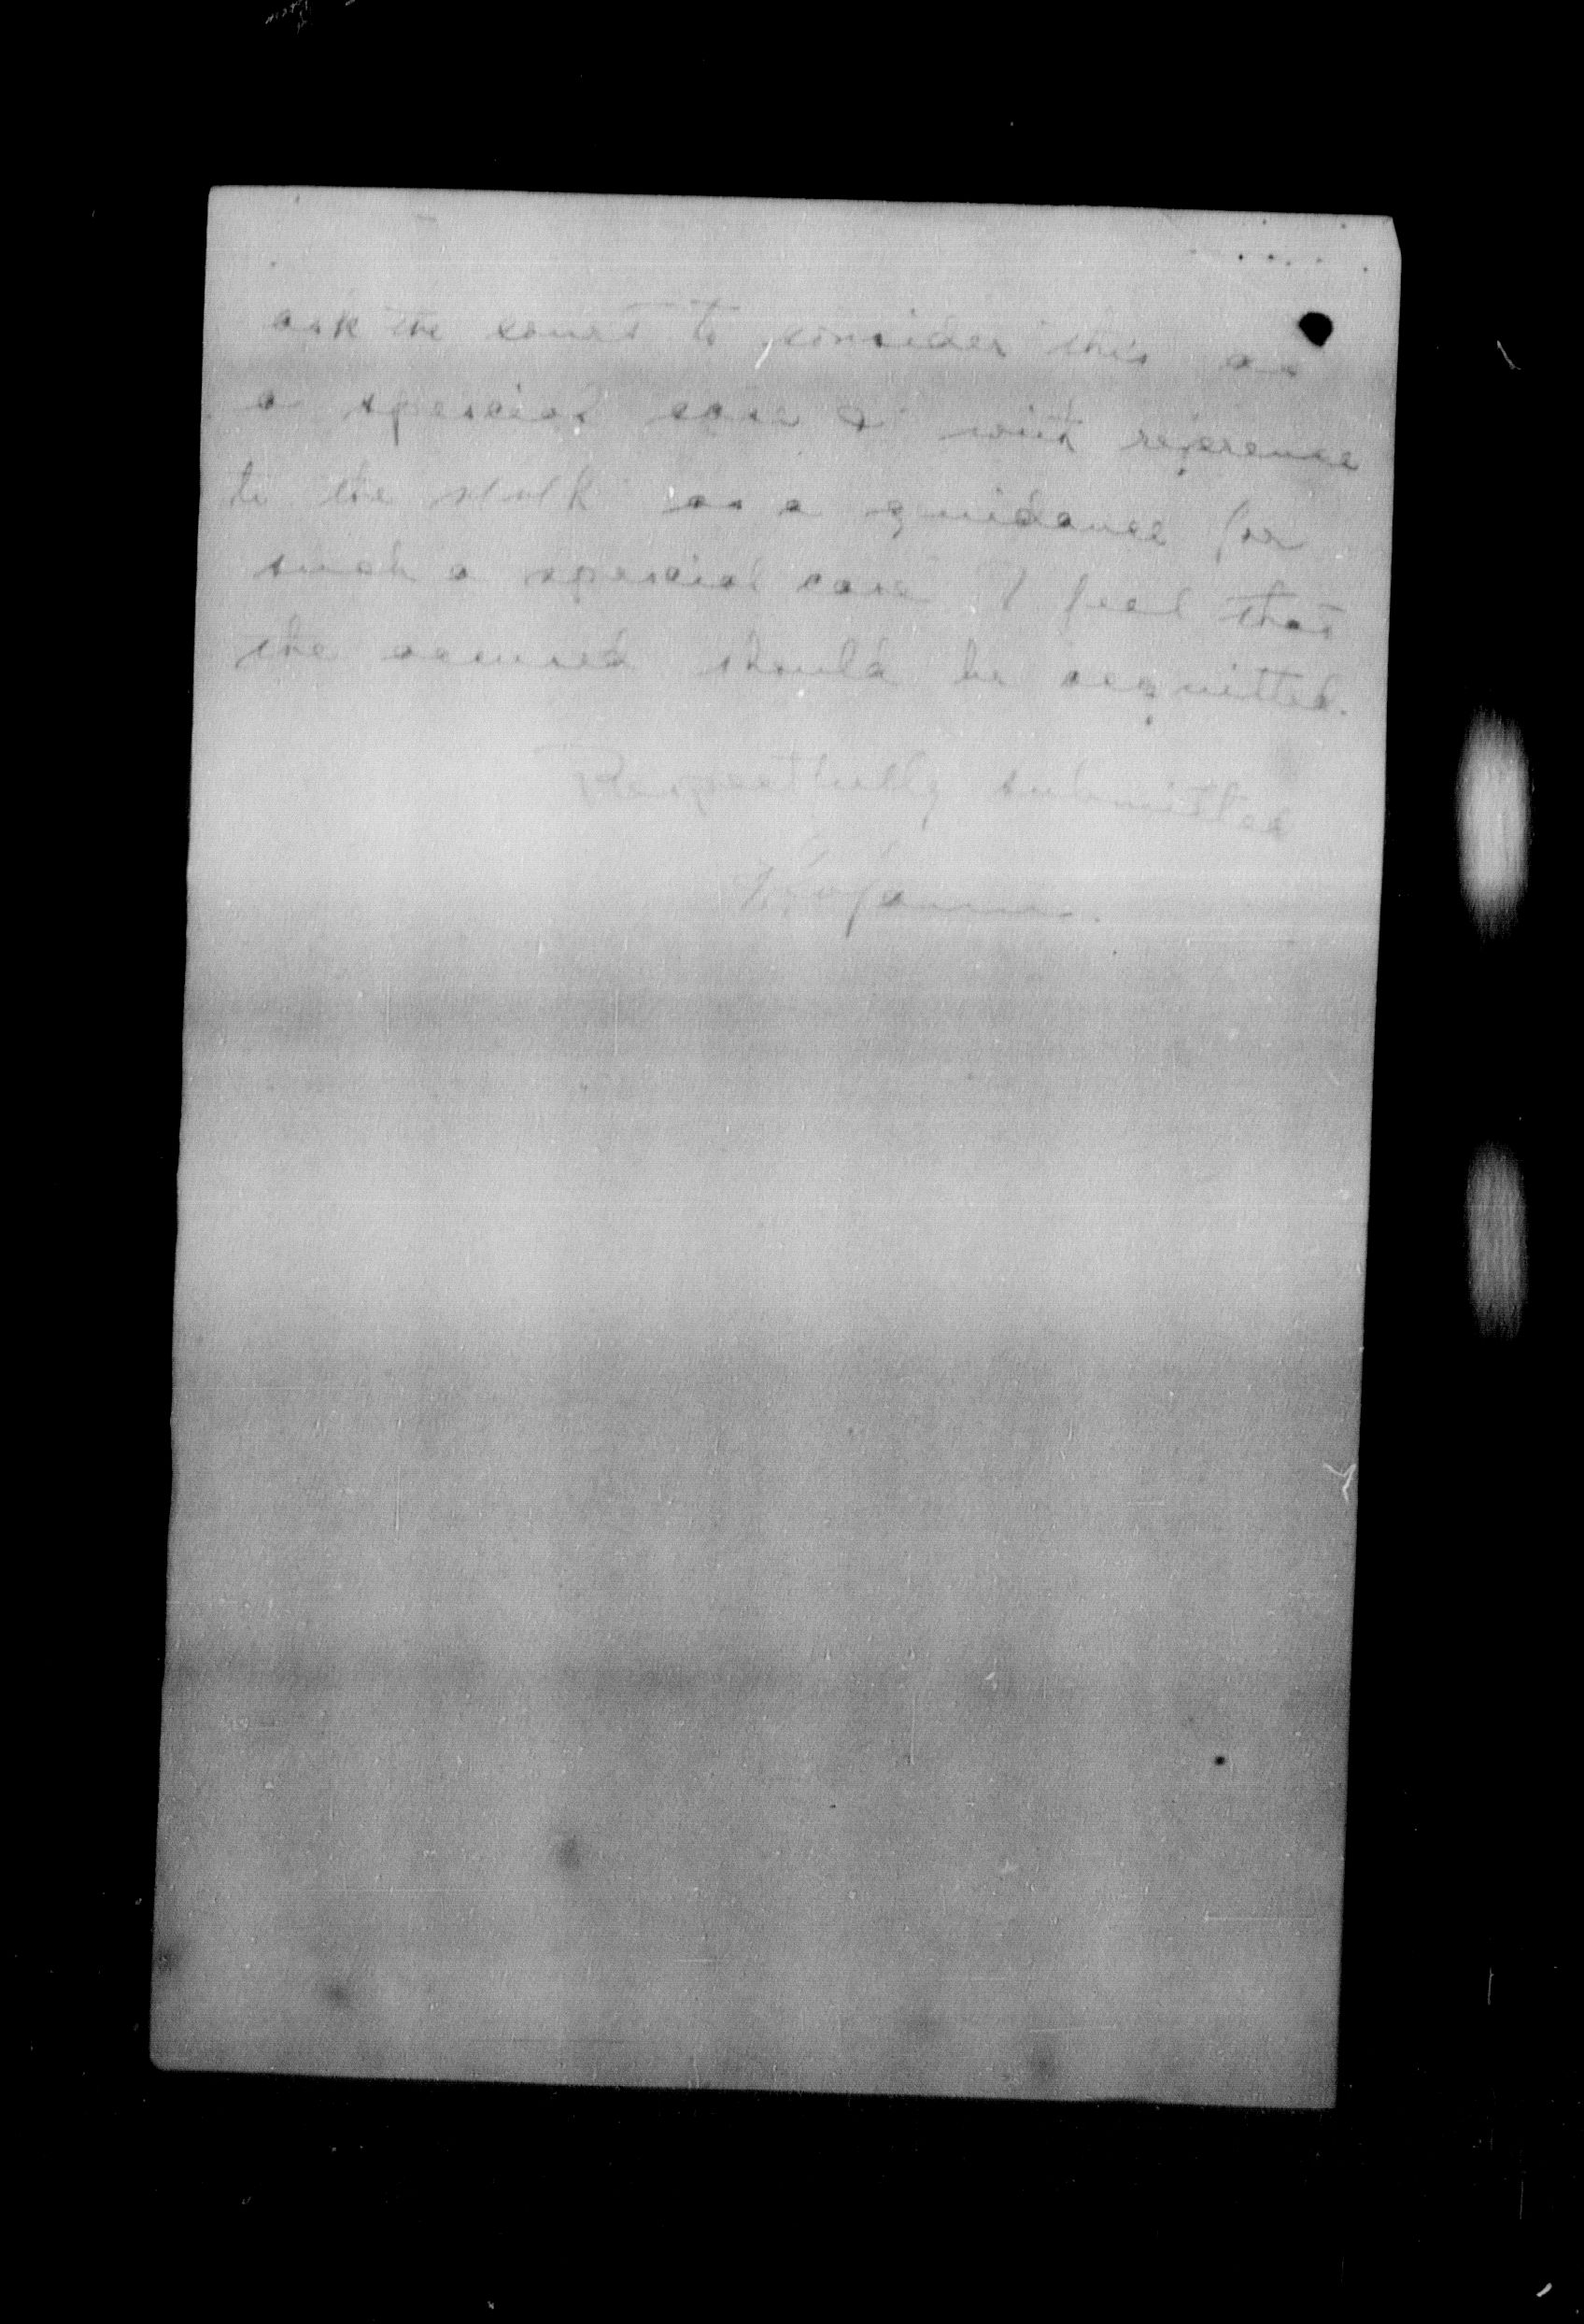 ask the court to consider this as
a special case & with reference
to the as a guidance for
such a special case I feel that
the accused should be acquitted.
Respectfully submitted